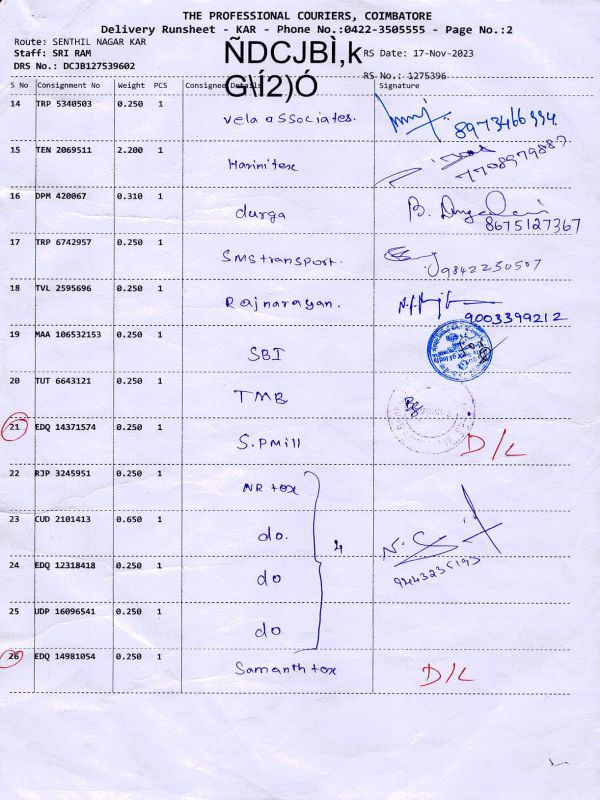 THE PROFESSIONAL COURIERS, COIMBATORE
Delivery Runsheet - KAR - Phone No.:0422-3505555 - Page No.:2
Route: SENTHIL NAGAR KAR
Staff: SRI RAM
DRS No.: DCJB127539602
ÑDCJBÌ,k
G\Í2)Ó
RS Date: 17-Nov-2023
RS No.: 1275396
S No Consignment No Weight PCS Consignee Details Signature
14 TRP 5340503 0.250 1 Vela associates. 8973466994
15 TEN 2069511 2.200 1 Harinitex
16 DPM 420067 0.310 1 durga B. 8675127367
17 TRP 6742957 0.250 1 SMS transport. 9842250507
18 TVL 2595696 0.250 1 Rajnarayan. 9003399212
19 MAA 106532153 0.250 1 SBI
20 TUT 6643121 0.250 1 TMB
21 EDQ 14371574 0.250 1 S.P Mill D/L
22 RJP 3245951 0.250 1 NR tex
23 CUD 2101413 0.650 1 do. 4
24 EDQ 12318418 0.250 1 do 9443235193
25 UDP 16096541 0.250 1 do
26 EDQ 14981054 0.250 1 Samanth tex D/L